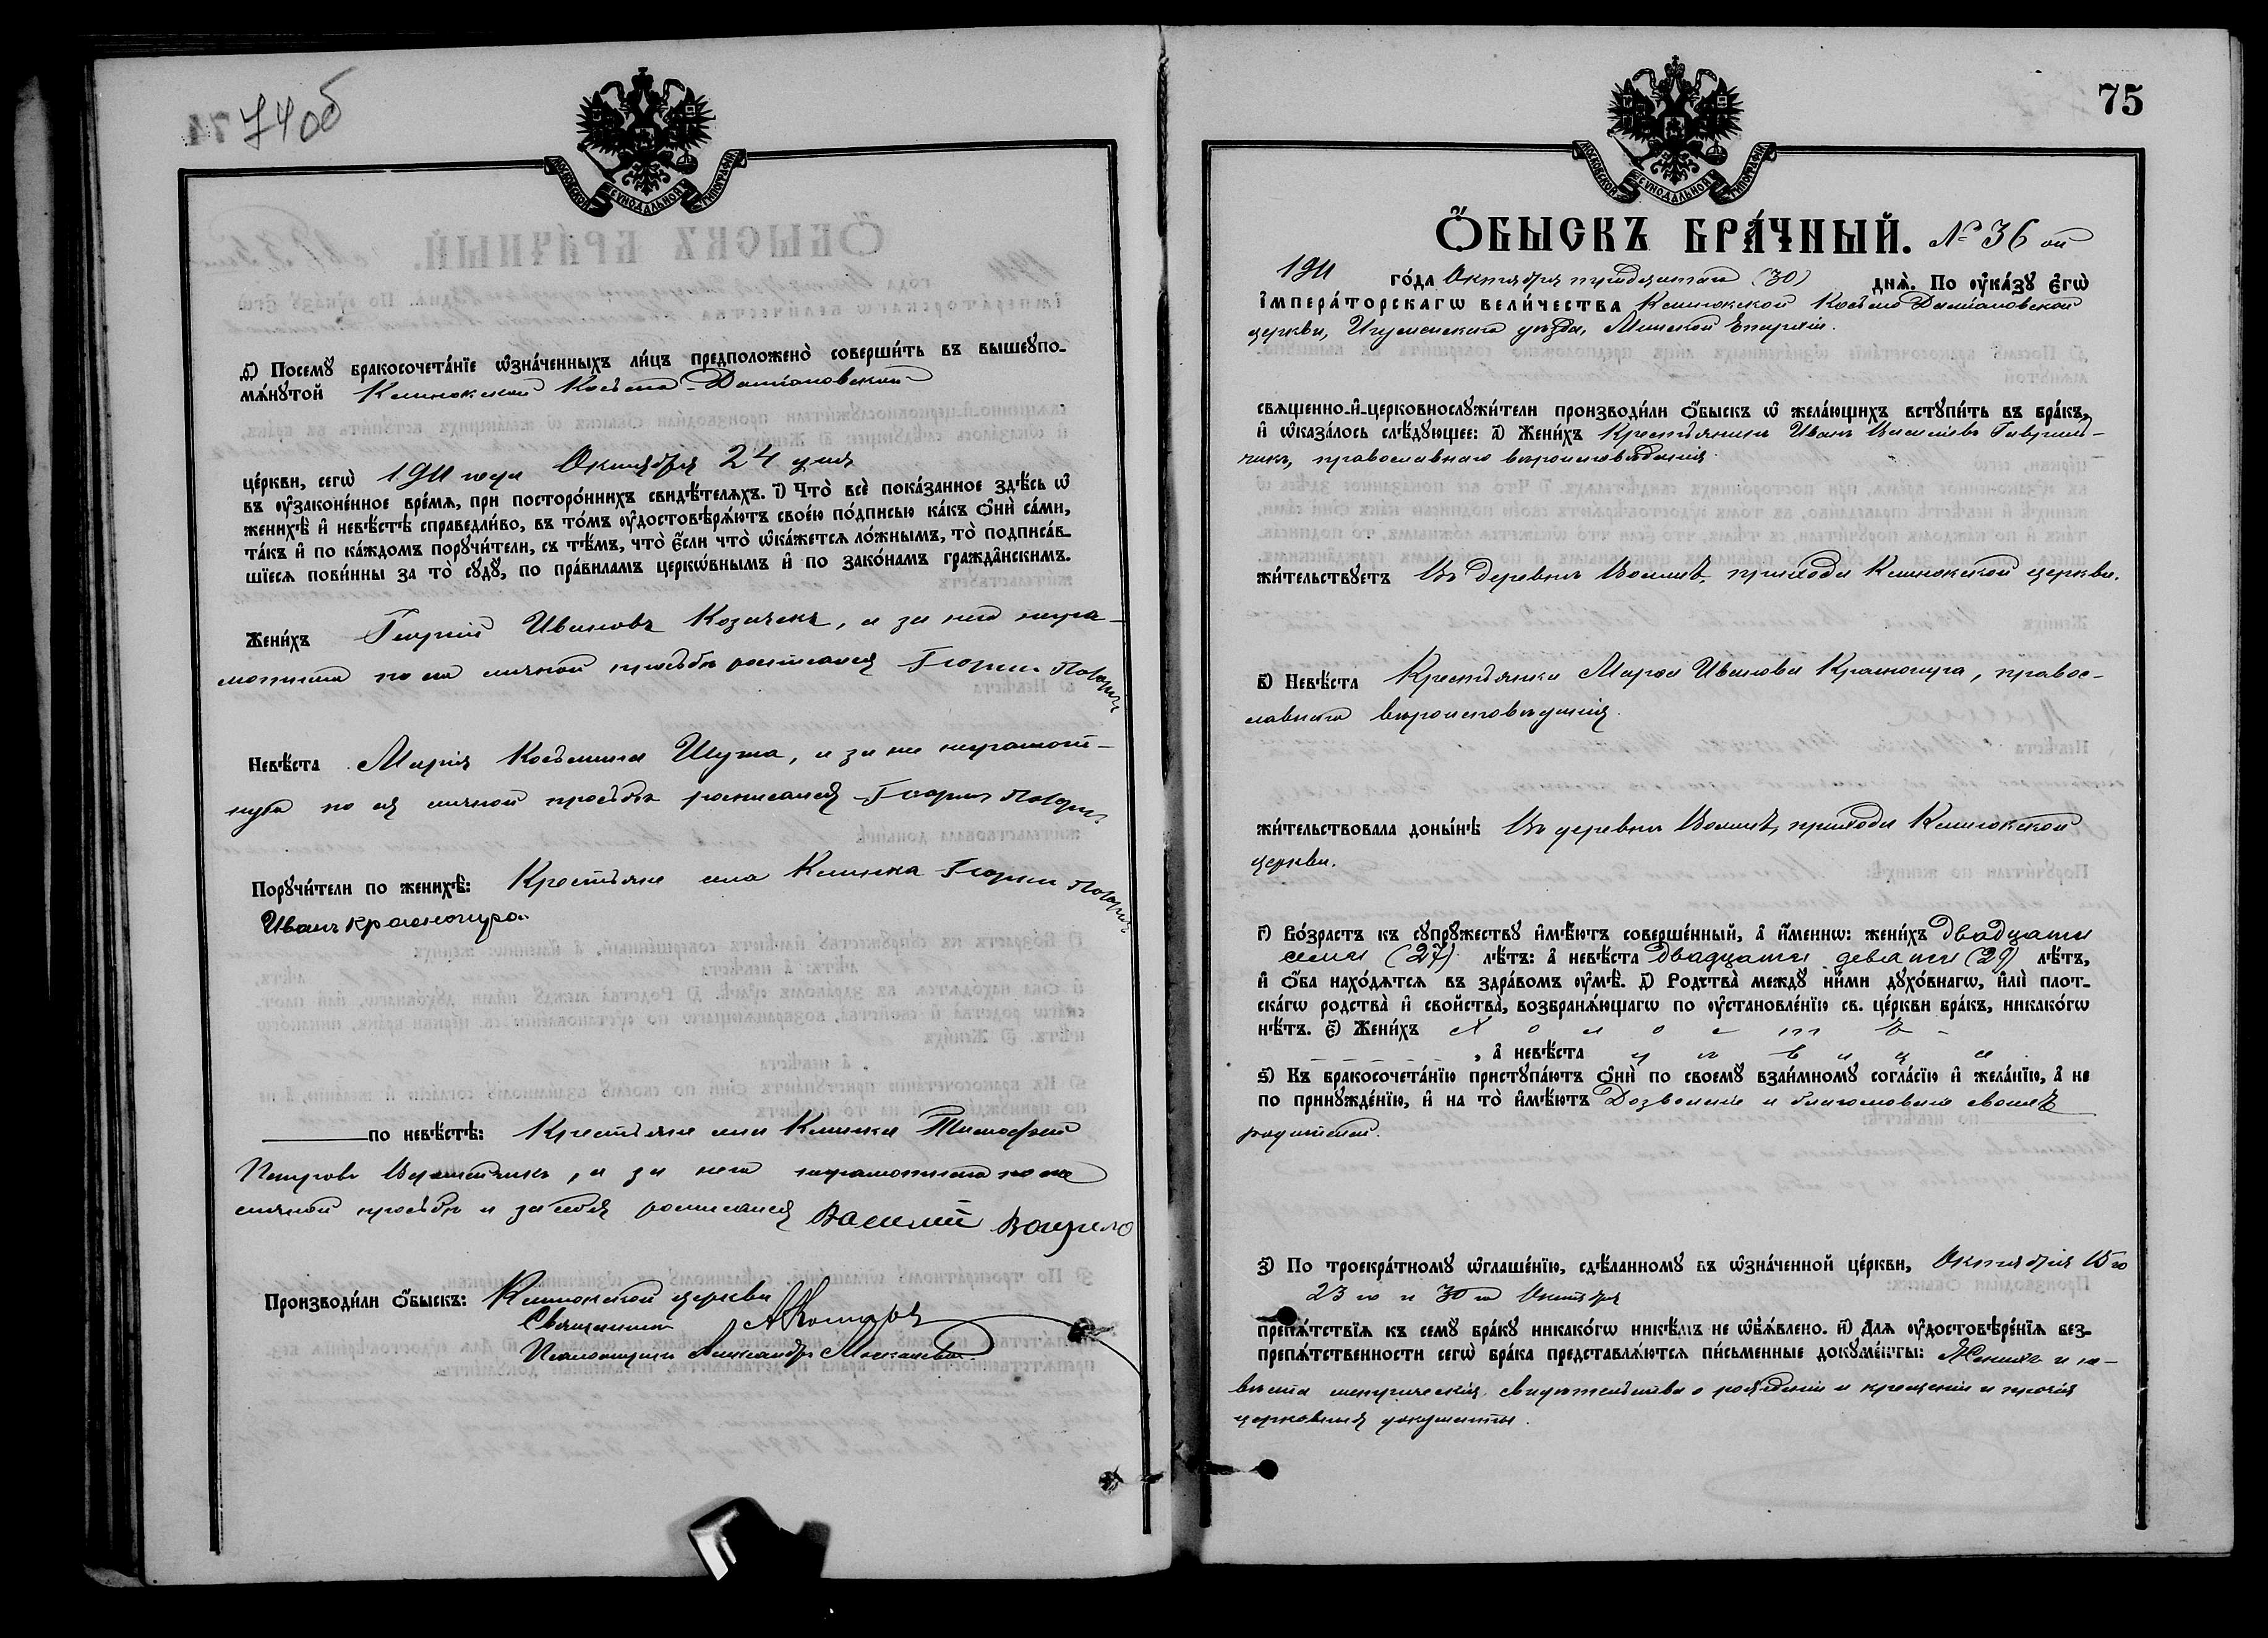 74об
МОСКОВСКОЙ СѴНОДАЛЬНОЙ ТИПОГРАФІИ
д҃) Посемꙋ бракосочета́нїе ѡ҆зна́ченныхъ ли́цъ предположено̀ соверши́ть въ вышеꙋпо-
мѧ́нꙋтой Клинокской Косьмо-Даміановской
це́ркви, сегѡ̀ 1911 года Октября 24 дня
въ ᲂу҆законе́нное вре́мѧ, при посторо́ннихъ свидѣ́телѧхъ. і҃) Что̀ всѐ пока́занное здѣ́сь ѡ҆
женихѣ̀ и҆ невѣ́стѣ справедли́во, въ то́мъ ᲂу҆достовѣрѧ́ютъ свое́ю по́дписью ка́къ ѻ҆нѝ са́ми,
та́къ и҆ по ка́ждомъ порꙋчи́тели, съ тѣ́мъ, что̀ є҆́сли что̀ ѡ҆ка́жетсѧ ло́жнымъ, то̀ подписа́в-
шїесѧ пови́нны за то̀ сꙋдꙋ̀, по пра́виламъ церко́внымъ и҆ по зако́намъ гражда́нскимъ.
Жени́хъ Георгій Ивановъ Козачекъ, а за него негра-
мотнаго по его личной просьбѣ росписался Георгій
Невѣ́ста Марія Косьмина Шума, а за нее неграмот-
ную по ея личной просьбѣ росписался Георгій
Порꙋчи́тели по женихѣ̀: Крестьяне села Клинка Георгій
Иванъ Красногира
по невѣ́стѣ: Крестьяне села Клинка Тимофей
Петровъ, а за него неграмотнаго по его
личной просьбѣ и за себя росписался Василій
Производи́ли ѻ҆́быскъ: Клинокской церкви
Священникъ
Псаломщикъ Александръ
75
МОСКОВСКОЙ СѴНОДАЛЬНОЙ ТИПОГРАФІИ
Ѻ҆́БЫСКЪ БРА́ЧНЫЙ. № 36 ой
1911 го́да Октября тридцатаго (30) днѧ̀. По ᲂу҆ка́зꙋ є҆гѡ̀
і҆мпера́торскагѡ вели́чества Клинокской Косьмо Даміановской
церкви, Игуменскаго уѣзда, Минской Епархіи.
свѧщенно-и҆-церковнослꙋжи́тели производи́ли ѻ҆́быскъ ѡ҆ жела́ющихъ встꙋпи́ть въ бра́къ,
и҆ ѡ҆каза́лось слѣ́дꙋющее: а҃) Жени́хъ Крестьянинъ Иванъ Васильевъ Гаврил-
чикъ, православнаго вѣроисповѣданія.
жи́тельствꙋетъ Въ деревнѣ, прихода Клинокской церкви.
в҃) Невѣ́ста Крестьянка Марѳа Иванова Красногира, правос-
лавнаго вѣроисповѣданія.
жи́тельствовала доны́нѣ Въ деревнѣ, прихода Клинокской
церкви.
г҃) Во́зрастъ къ сꙋпрꙋ́жествꙋ и҆мѣ́ютъ соверше́нный, а҆ и҆́меннѡ: жени́хъ двадцати
семи (27) лѣ́тъ: а҆ невѣ́ста Двадцати девяти (29) лѣ́тъ,
и҆ ѻ҆́ба нахо́дѧтсѧ въ здра́вомъ ᲂу҆мѣ̀. д҃) Родства̀ междꙋ̀ ни́ми дꙋхо́внагѡ, и҆лѝ плот-
ска́гѡ родства̀ и҆ сво́йства, возбранѧ́ющагѡ по ᲂу҆становле́нїю св. це́ркви бра́къ, никако́гѡ
нѣ́тъ. є҃) Жени́хъ холостъ
, а҆ невѣ́ста дѣвица
ѕ҃) Къ бракосочета́нїю пристꙋпа́ютъ ѻ҆нѝ по своемꙋ̀ взаи́мномꙋ согла́сїю и҆ жела́нїю, а҆ не
по принꙋжде́нїю, и҆ на то̀ и҆мѣ́ютъ Дозволеніе и благословеніе своихъ
родителей.
з҃) По троекра́тномꙋ ѡ҆глаше́нїю, сдѣ́ланномꙋ въ ѡ҆зна́ченной це́ркви, Октября 15го
23 го и 30 го Октября
препѧ́тствїѧ къ семꙋ̀ бра́кꙋ никако́гѡ никѣ́мъ не ѡ҆б̾ѧ́влено. и҃) Длѧ ᲂу҆достовѣре́нїѧ без-
препѧ́тственности сегѡ̀ бра́ка представлѧ́ютсѧ пи́сьменные докꙋме́нты: Жениха и не-
вѣсты метрическія свидѣтельства о рожденіи и крещеніи и прочія
церковныя документы.